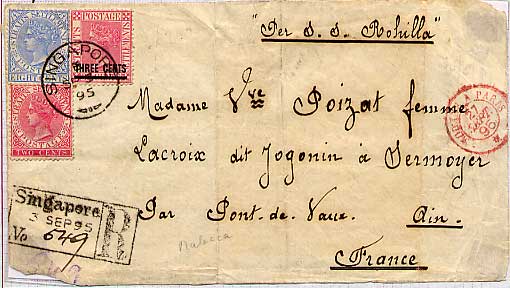 "Per S. S. Rohilla"
STRAITS SETTLEMENTS
POSTAGE
EIGHT CENTS
THREE CENTS
SINGAPORE
95
POSTAGE
TWO CENTS
PARIS
Madame Vve Poizat femme
Lacroix dit Jogonin à Sermoyer
Par Pont-de-Vaux. Ain.
France
Singapore
3 SEP 95
No 549
R
Malacca